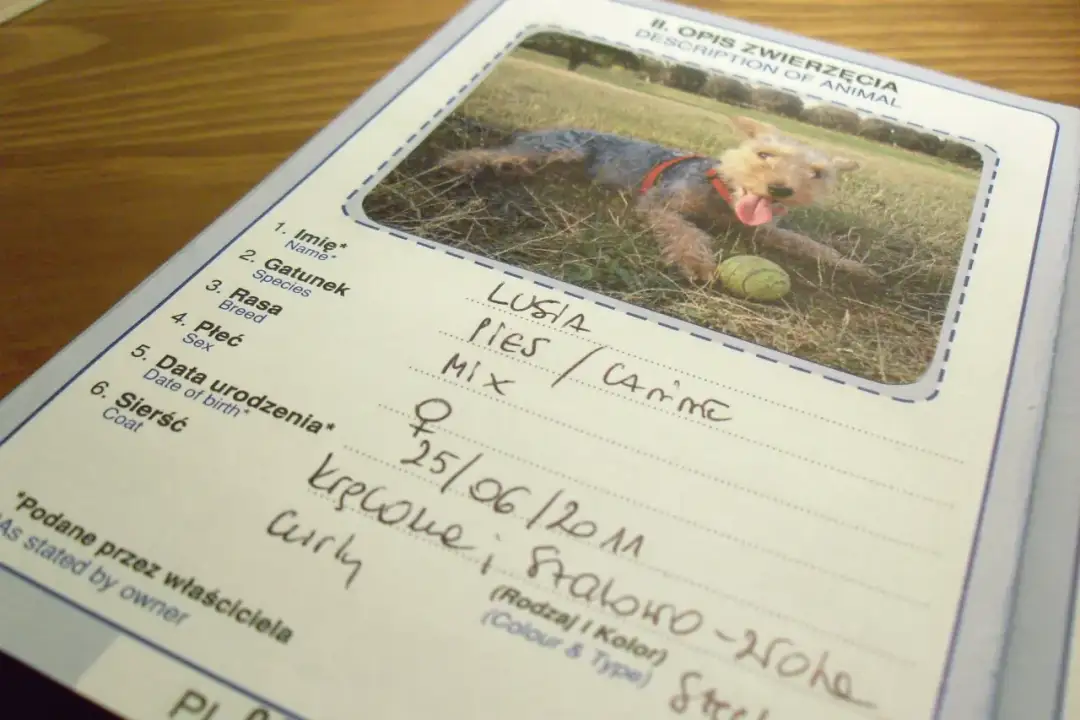 II. OPIS ZWIERZĘCIA
DESCRIPTION OF ANIMAL
1. Imię* LUSIA
Name*
2. Gatunek PIES / CANINE
Species
3. Rasa MIX
Breed
4. Płeć ♀
Sex
5. Data urodzenia* 25/06/2011
Date of birth*
6. Sierść kręcona; stalowo-złota
Coat curly
(Rodzaj i Kolor)
(Colour & Type)
*Podane przez właściciela
As stated by owner
PL